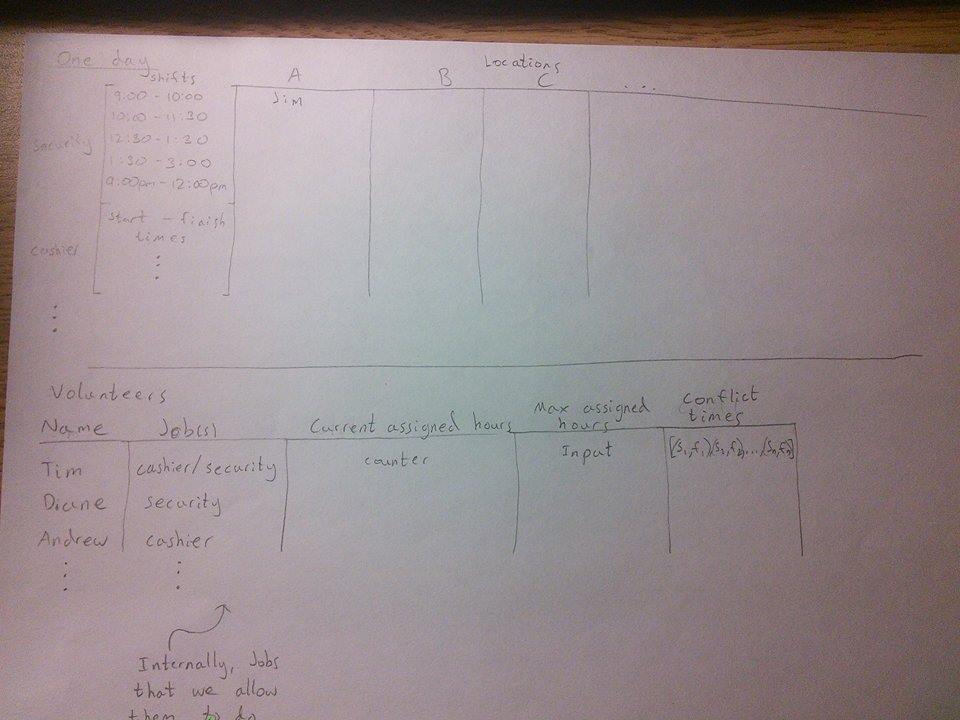 One day
Locations
shifts A B C ...
security
9:00 - 10:00 Jim
10:00 - 11:30
12:30 - 1:30
1:30 - 3:00
9:00pm - 12:00pm
cashier
start - finish
times
Volunteers
Name Job(s) Current assigned hours Max assigned hours Conflict times
Tim cashier/security counter Input [(s1,f1)(s2,f2),...,(sn,fn)]
Diane security
Andrew cashier
Internally, Jobs
that we allow
them to do